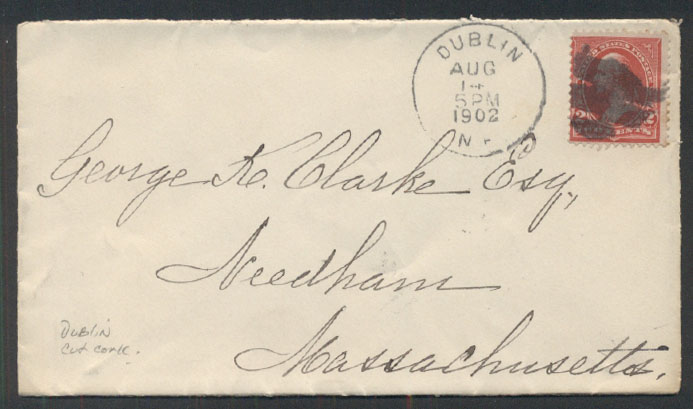 DUBLIN
AUG
14
5PM
1902
N.H.
2 CENTS 2
George K. Clarke Esq.,
Needham
Massachusetts.
Dublin
cut cork.